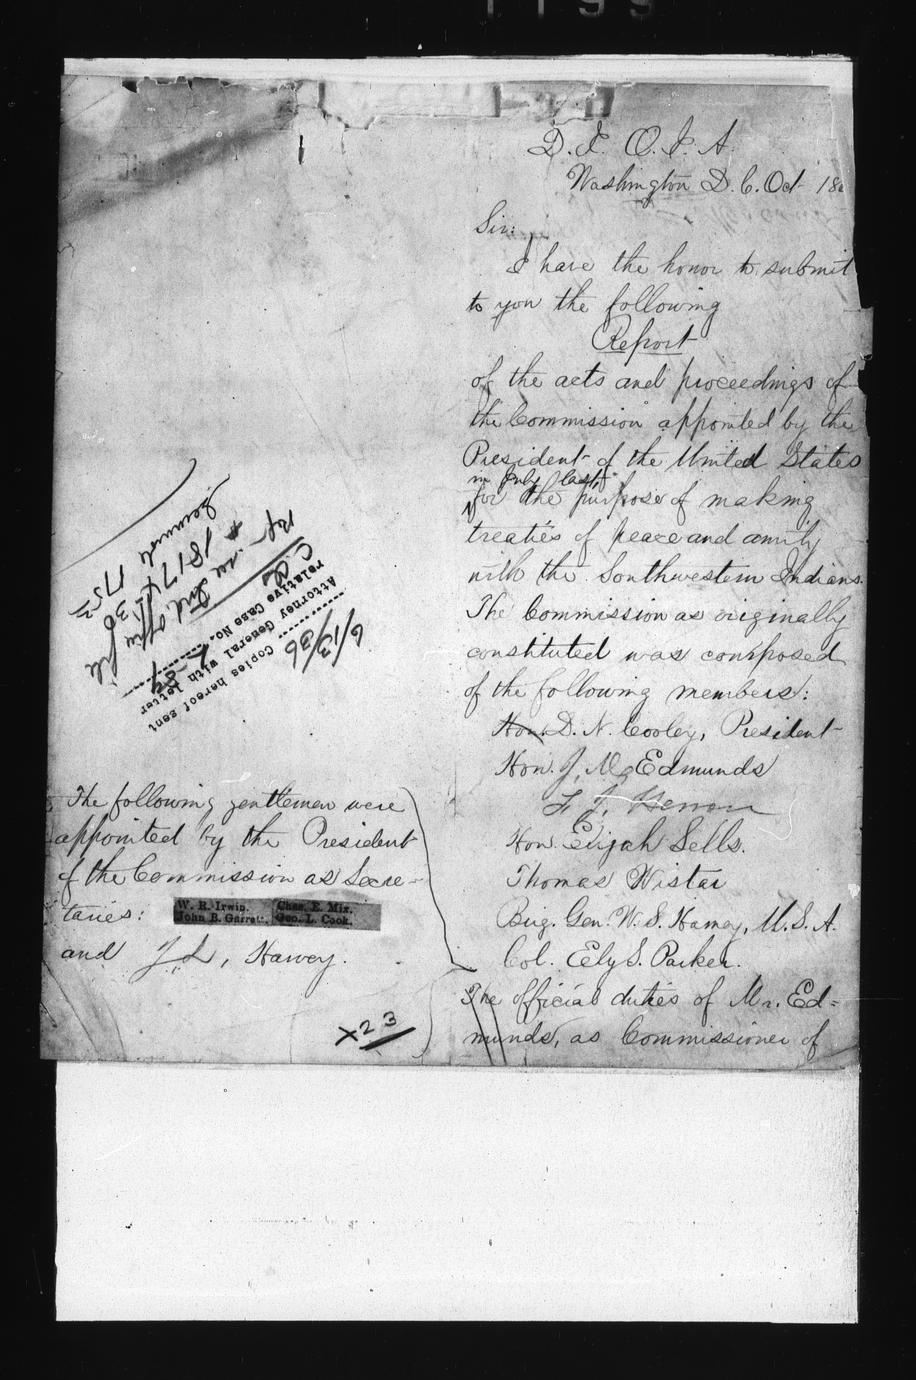 D. I. O. I. A.
Washington D. C. Oct 186
Sir:
I have the honor to submit
to you the following
Report
of the acts and proceedings of
the Commission appointed by the
President of the United States
in July last,
for the purpose of making
treaties of peace and amity
with the Southwestern Indians.
The Commission as originally
constituted was composed
of the following members:
Hon. D. N. Cooley, President
Hon. J. M. Edmunds
F. J. Herron
Hon. Elijah Sells.
Thomas Wistar
Brig. Gen. W. S. Harney, U. S. A.
Col. Ely S. Parker.
The official duties of Mr. Ed=
munds, as Commissioner of
The following gentlemen were
appointed by the President
of the Commission as Secre-
taries:
W. R. Irwin. Chas. E. Mix.
John B. Garrett. Geo. L. Cook.
and J. L. Harvey.
x23
Copies hereof sent
Attorney General with letter
relative Case No. L-89
6/13/36
C.A.
Ref - see Ind. Office file
# 18174-36
Seminole 175